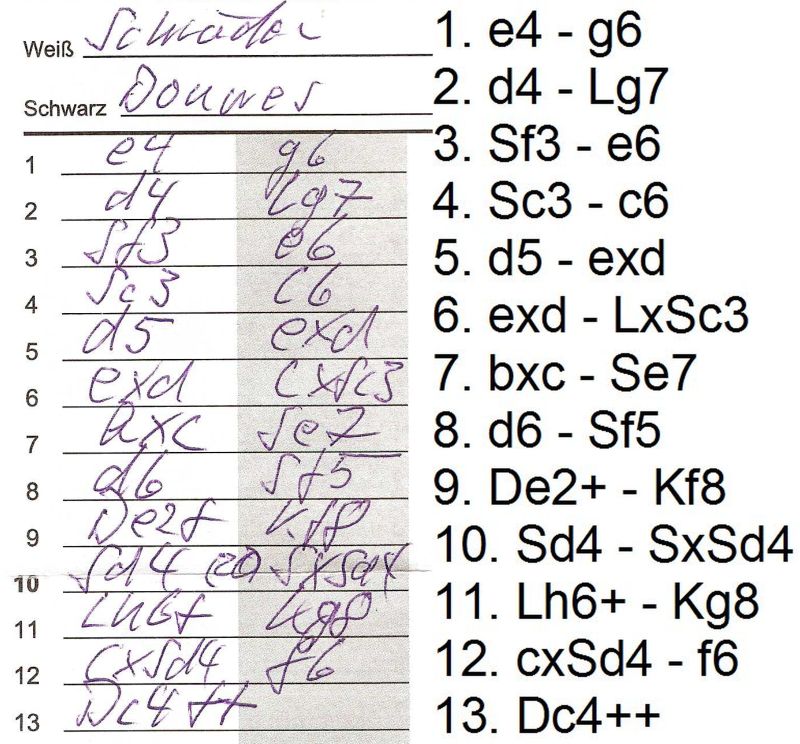 Weiß Schröder
Schwarz Douwes
1 e4 g6
2 d4 Lg7
3 Sf3 e6
4 Sc3 c6
5 d5 exd
6 exd LxSc3
7 bxc Se7
8 d6 Sf5
9 De2+ Kf8
10 Sd4 SxSd4
11 Lh6+ Kg8
12 cxSd4 f6
13 Dc4++
1. e4 - g6
2. d4 - Lg7
3. Sf3 - e6
4. Sc3 - c6
5. d5 - exd
6. exd - LxSc3
7. bxc - Se7
8. d6 - Sf5
9. De2+ - Kf8
10. Sd4 - SxSd4
11. Lh6+ - Kg8
12. cxSd4 - f6
13. Dc4++